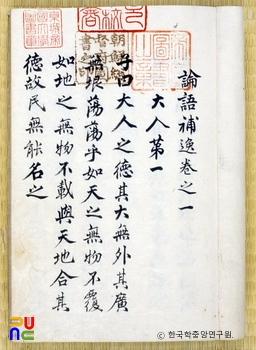 論語補逸卷之一
大人第一
子曰大人之德其大無外其廣
無垠蕩蕩乎如天之無物不覆
如地之無物不載與天地合其
德故民無能名之
朝鮮總
督府圖
書之印
© 한국학중앙연구원